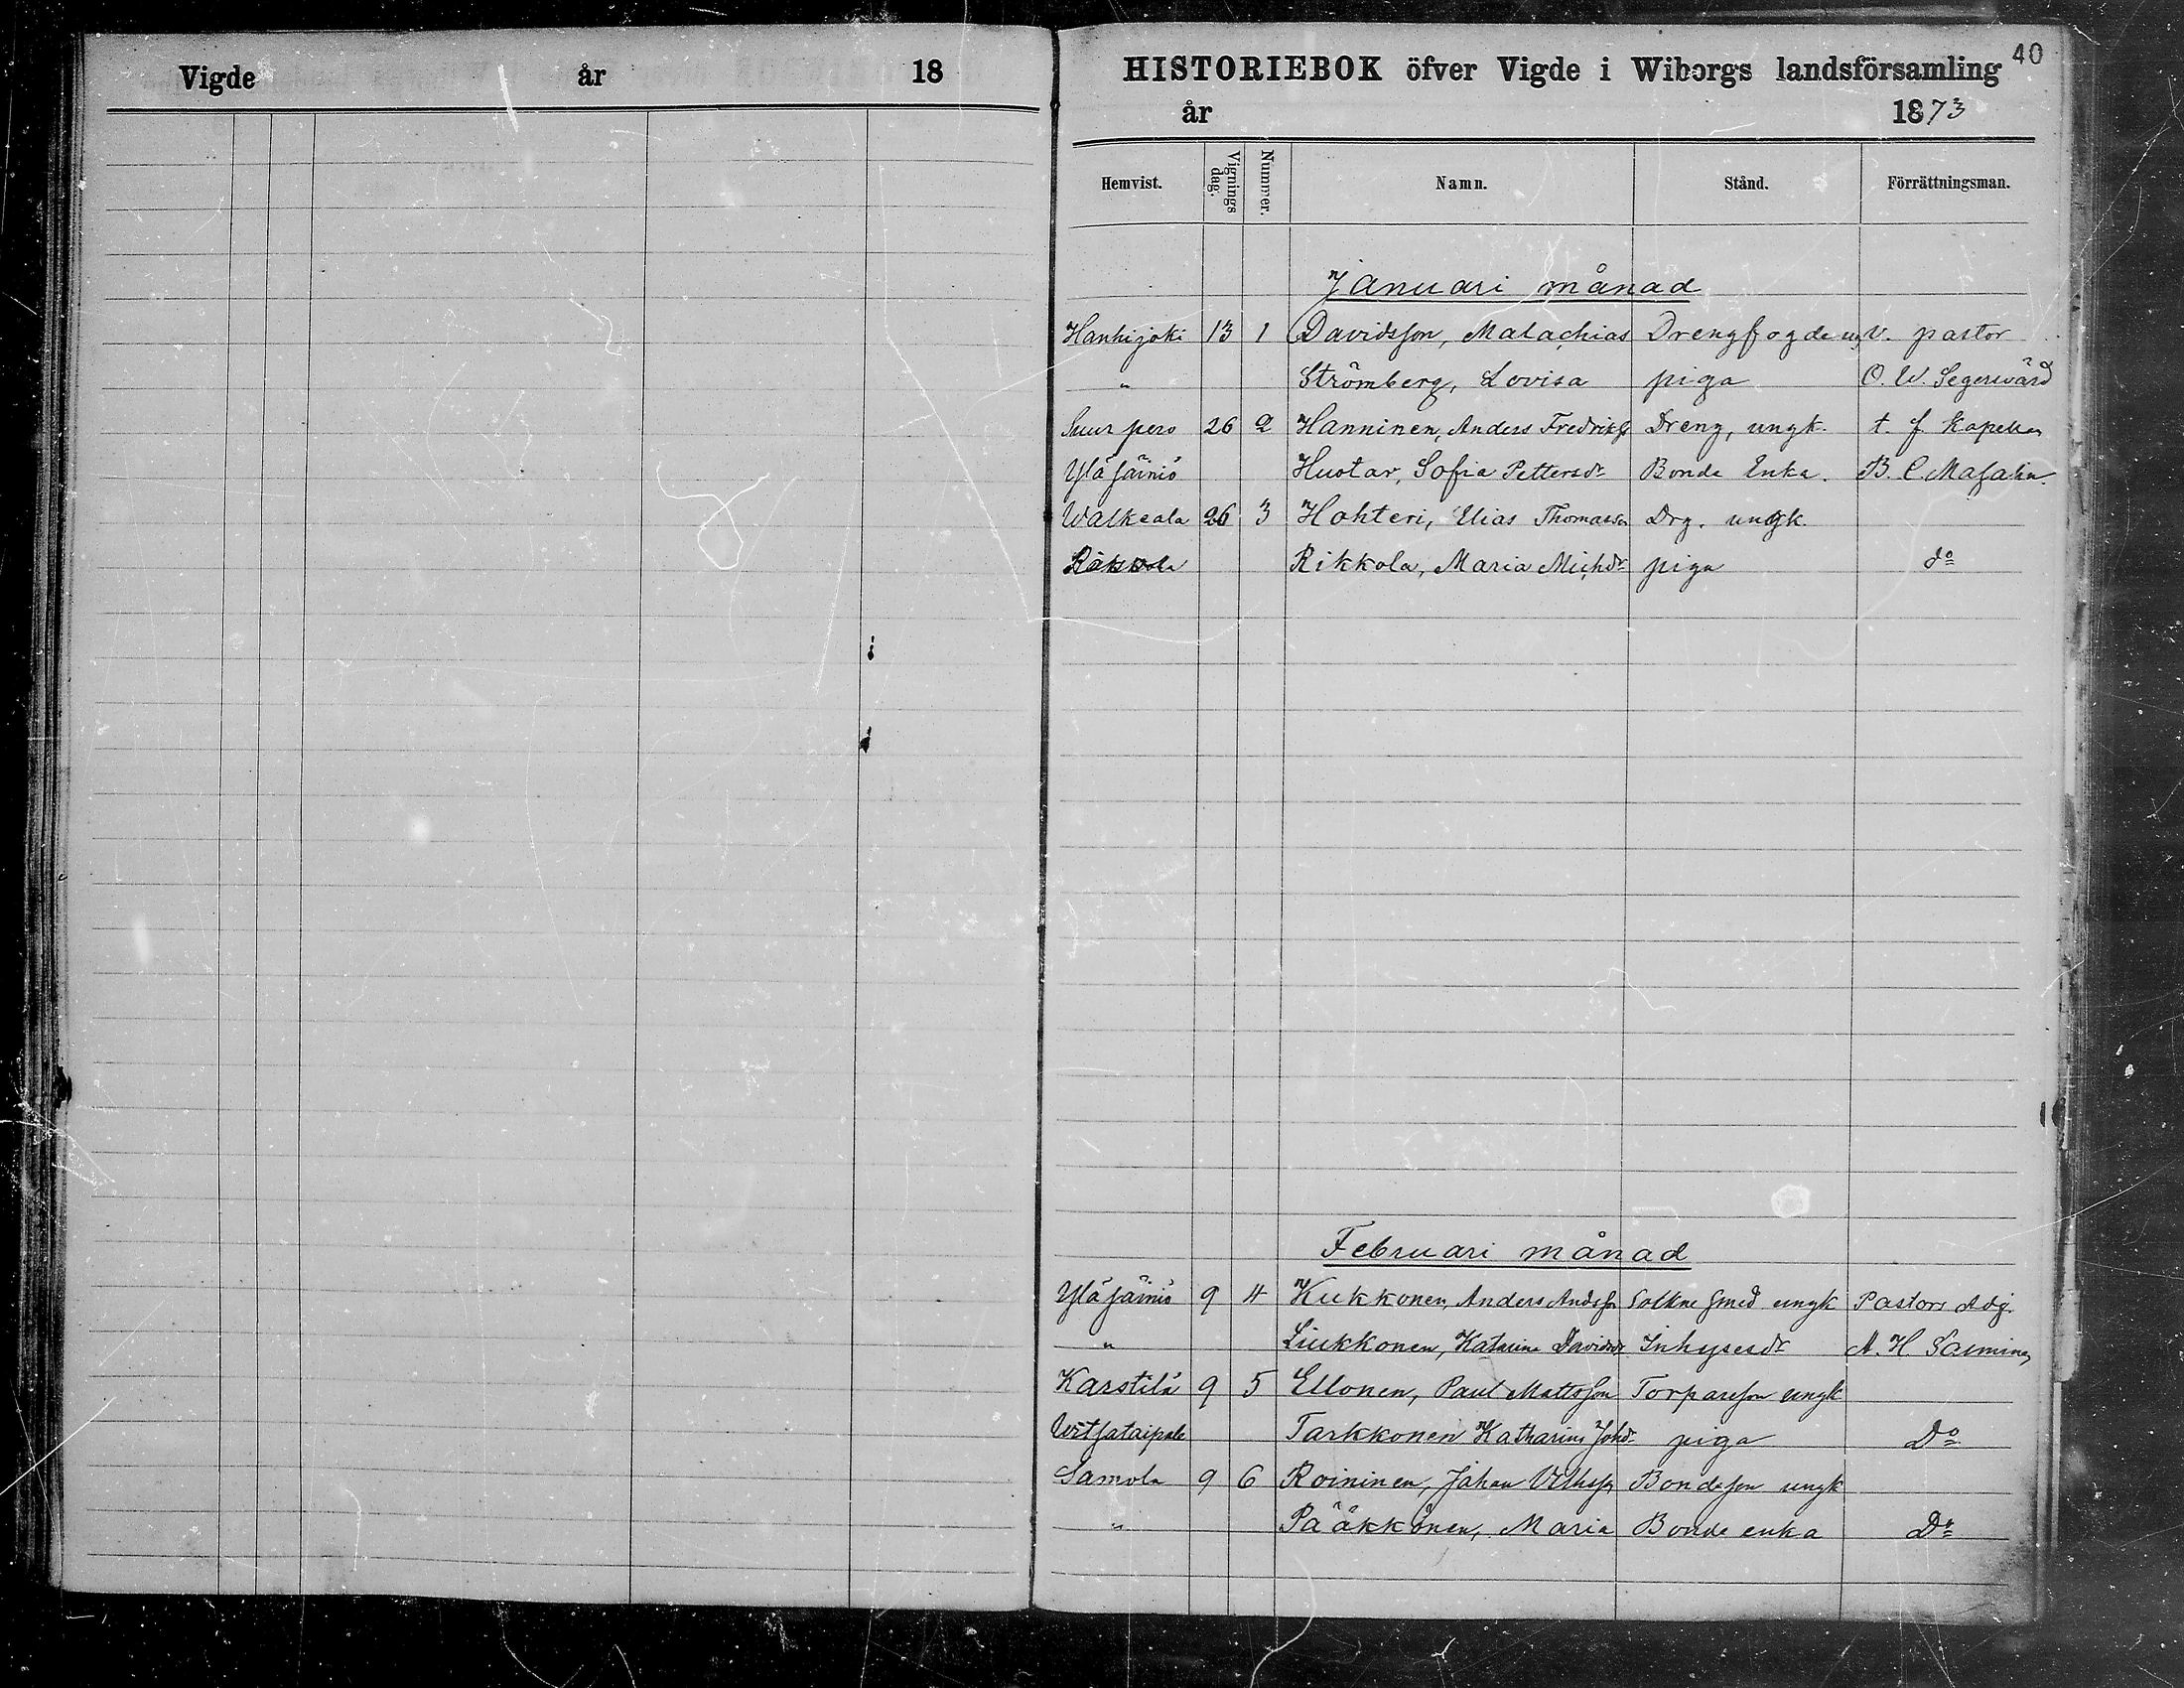 Vigde år 18
40
HISTORIEBOK öfver Vigde i Wiborgs landsförsamling
år 1873
Hemvist. Vignings dag. Nummer. Namn. Stånd. Förrättningsman.
Januari månad
Hanhijoki 13 1 Davidsson, Malachias Drengfogde v. pastor
" Strömberg, Lovisa piga O. W. Segersvärd
Suur pero 26 2 Hanninen, Anders Fredriks Dreng, ungk. t. f. Kapellan
Ylä Säiniö Huotar, Sofia Pettersdr Bonde Enka. B. C.
Walkeala 26 3 Hohteri, Elias Thomasson Drg. ungk.
Rikkola, Maria Michdr piga do
Februari månad
Ylä Säiniö 9 4 Kukkonen, Anders Andsson Smed ungk Pastors Adj.
" Liukkonen, Katarina Davidsdr Inhysesdr A. H. Saxmine
Karstilä 9 5 Ellonen, Paul Mattsson Torpareson ungk
Tarkkonen Katharina Johdr piga Do
Samola 9 6 Roininen, Johan Bondeson ungk
" Pääkkönen, Maria Bonde enka Do